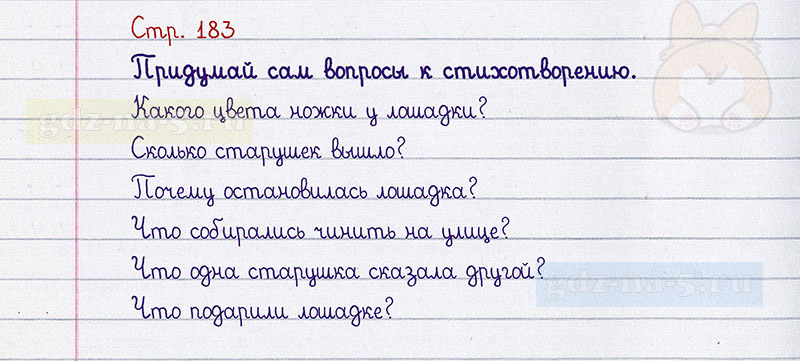 Стр. 183
Придумай сам вопросы к стихотворению.
Какого цвета ножки у лошадки?
gdz-na-5.ru
Сколько старушек вышло?
Почему остановилась лошадка?
Что собирались чинить на улице?
Что одна старушка сказала другой?
gdz-na-5.ru
Что подарили лошадке?